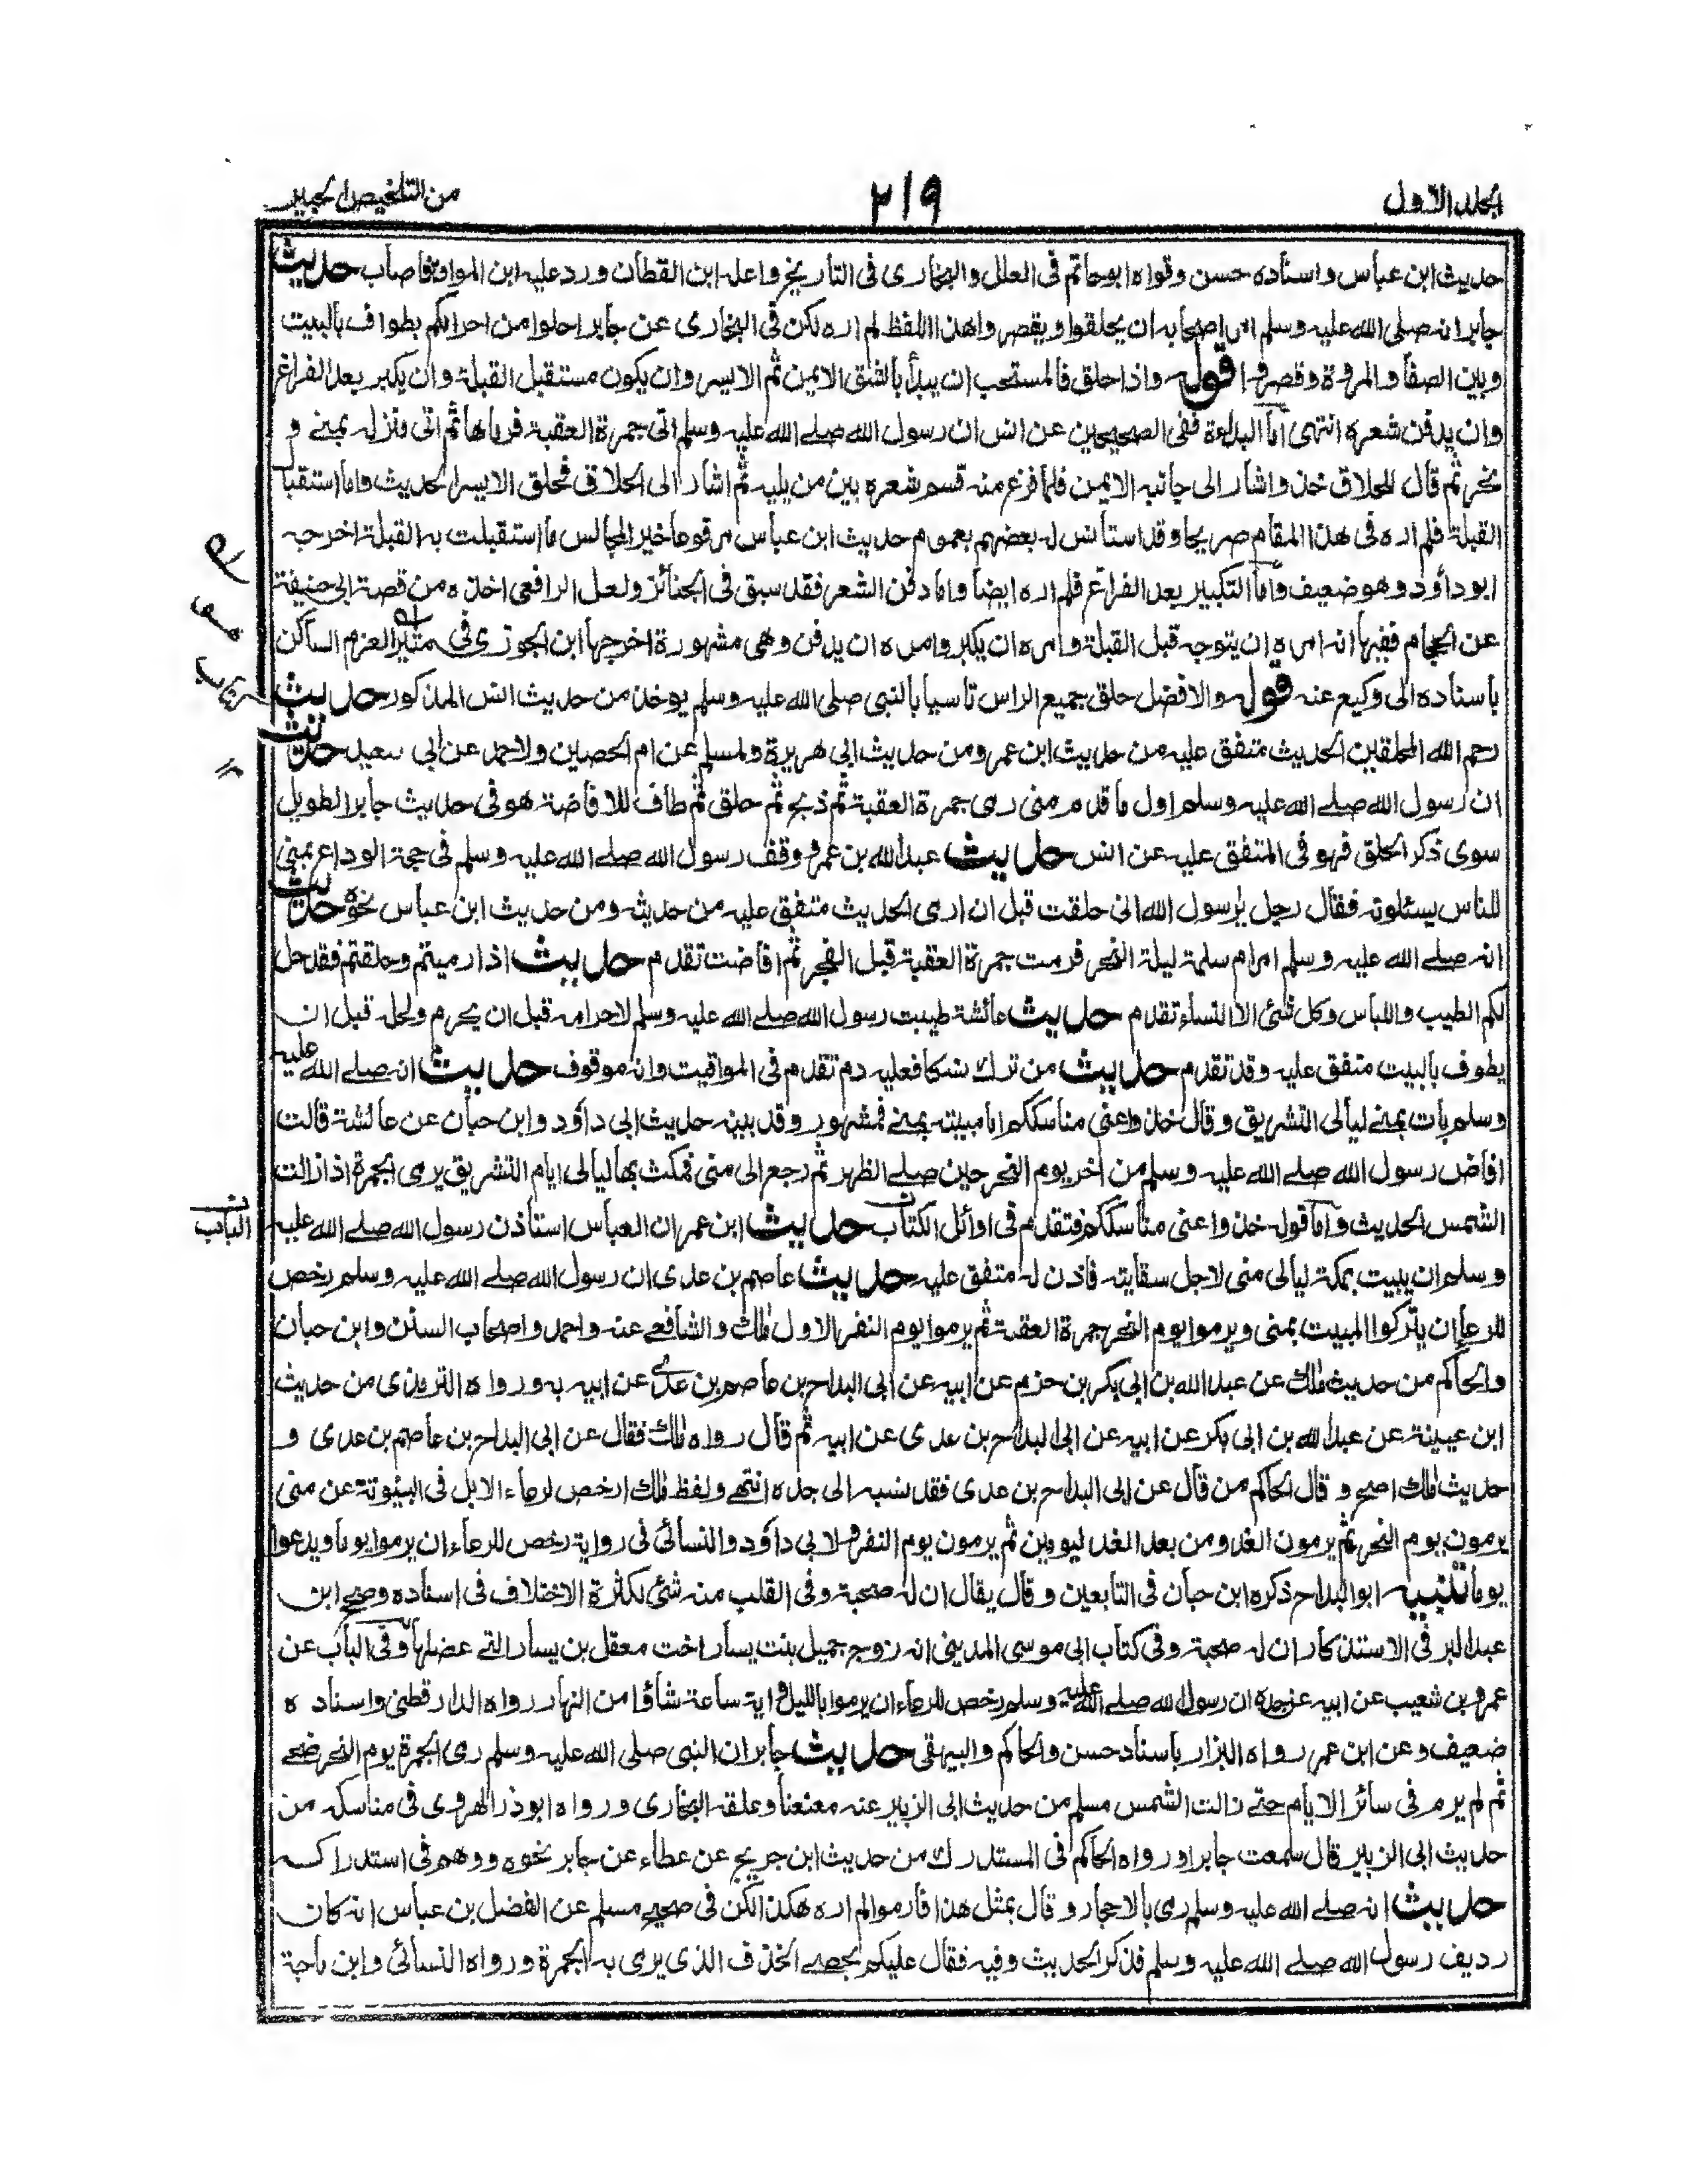 الجلد الاول
٢١٩
من التلخيص الحبير
حديث ابن عباس واسناده حسن وقواه ابو حاتم فى العلل والبخارى فى التاريخ واعله ابن القطان ورد عليه ابن المواق فاصاب حديث
جابر انه صلى الله عليه وسلم امر اصحابه ان يحلقوا ويقصروا هذا اللفظ لم اره لكن فى البخارى عن جابر احلوا من احرامكم بطواف بالبيت
وبين الصفا والمروة وقصروا قوله واذا حلق فالمستحب ان يبدأ بالشق الايمن ثم الايسر وان يكون مستقبل القبلة وان يكبر بعد الفراغ
وان يدفن شعره انتهى اما البداءة ففى الصحيحين عن انس ان رسول الله صلے الله عليه وسلم اتى جمرة العقبة فرماها ثم اتى منزله بمنے و
نحر ثم قال للحلاق خذ واشار الى جانبه الايمن فلما فرغ منه قسم شعره بين من يليه ثم اشار الى الحلاق فحلق الايسر الحديث واما استقبال
القبلة فلم اره فى هذا المقام صريحا وقد استأنس له بعضهم بعموم حديث ابن عباس مرفوعا خير المجالس ما استقبلت به القبلة اخرجه
ابو داؤد وهو ضعيف واما التكبير بعد الفراغ فلم اره ايضا واما دفن الشعر فقد سبق فى الجنائز ولعل الرافعى اخذه من قصة ابى حنيفة
عن الحجام ففيها انه امره ان يتوجه قبل القبلة وامره ان يكبر وامره ان يدفن وهى مشهورة اخرجها ابن الجوزى فى مثير العزم الساكن
باسناده الى وكيع عنه قوله والافضل حلق جميع الراس تاسيا بالنبى صلى الله عليه وسلم يوخذ من حديث انس المذكور حديث
رحم الله المحلقين الحديث متفق عليه من حديث ابن عمر ومن حديث ابى هريرة ولمسلم عن ام الحصين ولاحمد عن ابى سعيد حديث
ان رسول الله صلے الله عليه وسلم اول ما قدم منى رمى جمرة العقبة ثم ذبح ثم حلق ثم طاف للافاضة هو فى حديث جابر الطويل
سوى ذكر الحلق فهو فى المتفق عليه عن انس حديث عبد الله بن عمرو وقف رسول الله صلے الله عليه وسلم فى حجة الوداع بمنى
للناس يسئلونه فقال رجل يا رسول الله انى حلقت قبل ان ارمى الحديث متفق عليه من حديثه ومن حديث ابن عباس نحوه حديث
انه صلے الله عليه وسلم امر ام سلمة ليلة النحر فرمت جمرة العقبة قبل الفجر ثم افاضت تقدم حديث اذا رميتم وحلقتم فقد حل
لكم الطيب واللباس وكل شئ الا النساء تقدم حديث عائشة طيبت رسول الله صلے الله عليه وسلم لاحرامه قبل ان يحرم ولحله قبل ان
يطوف بالبيت متفق عليه وقد تقدم حديث من ترك نسكا فعليه دم تقدم فى المواقيت وانه موقوف حديث انه صلے الله عليه
وسلم بات بمنے ليالى التشريق وقال خذوا عنى مناسككم اما مبيته بمنے فمشهور وقد بينه حديث ابى داؤد وابن حبان عن عائشة قالت
افاض رسول الله صلے الله عليه وسلم من اخر يوم النحر حين صلے الظهر ثم رجع الى منى فمكث بها ليالى ايام التشريق يرمى الجمرة اذا زالت
الشمس الحديث واما قوله خذوا عنى مناسككم فتقدم فى اوائل الكتاب حديث ابن عمر ان العباس استأذن رسول الله صلے الله عليه
وسلم ان يبيت بمكة ليالى منى لاجل سقايته فاذن له متفق عليه حديث عاصم بن عدى ان رسول الله صلے الله عليه وسلم رخص
للرعاء ان يتركوا المبيت بمنى ويرموا يوم النحر جمرة العقبة ثم يرموا يوم النفر الاول مالك والشافعے عنه واحمد واصحاب السنن وابن حبان
والحاكم من حديث مالك عن عبد الله بن ابى بكر بن حزم عن ابيه عن ابى البداح بن عاصم بن عدى عن ابيه به ورواه الترمذى من حديث
ابن عيينة عن عبد الله بن ابى بكر عن ابيه عن ابى البداح بن عدى عن ابيه ثم قال رواه مالك فقال عن ابى البداح بن عاصم بن عدى و
حديث مالك اصح وقال الحاكم من قال عن ابى البداح بن عدى فقد نسبه الى جده انتهے ولفظ مالك ارخص لرعاء الابل فى البيتوتة عن منى
يرمون يوم النحر ثم يرمون الغد ومن بعد الغد ليومين ثم يرمون يوم النفر ولابى داؤد والنسائى فى رواية رخص للرعاء ان يرموا يوما ويدعوا
يوما تنبيه ابو البداح ذكره ابن حبان فى التابعين وقال يقال ان له صحبة وفى القلب منه شئ لكثرة الاختلاف فى اسناده وصحح ابن
عبد البر فى الاستذكار ان له صحبة وفى كتاب ابى موسى المدينى انه زوج جميل بنت يسار اخت معقل بن يسار التے عضلها وفى الباب عن
عمرو بن شعيب عن ابيه عن جده ان رسول الله صلے الله عليه وسلم رخص للرعاء ان يرموا بالليل واية ساعة شاؤا من النهار رواه الدارقطنى واسناده
ضعيف وعن ابن عمر رواه البزار باسناد حسن والحاكم والبيهقى حديث جابر ان النبى صلى الله عليه وسلم رمى الجمرة يوم النحر ضحے
ثم لم يرم فى سائر الايام حتے زالت الشمس مسلم من حديث ابى الزبير عنه معنعنا وعلقه البخارى ورواه ابو ذر الهروى فى مناسكه من
حديث ابى الزبير قال سمعت جابرا ورواه الحاكم فى المستدرك من حديث ابن جريج عن عطاء عن جابر نحوه ووهم فى استدراكه
حديث انه صلے الله عليه وسلم رمى بالاحجار وقال بمثل هذا فارموا لم اره هكذا لكن فى صحيح مسلم عن الفضل بن عباس انه كان
رديف رسول الله صلے الله عليه وسلم فذكر الحديث وفيه فقال عليكم بحصے الخذف الذى يرمى به الجمرة ورواه النسائى وابن ماجة